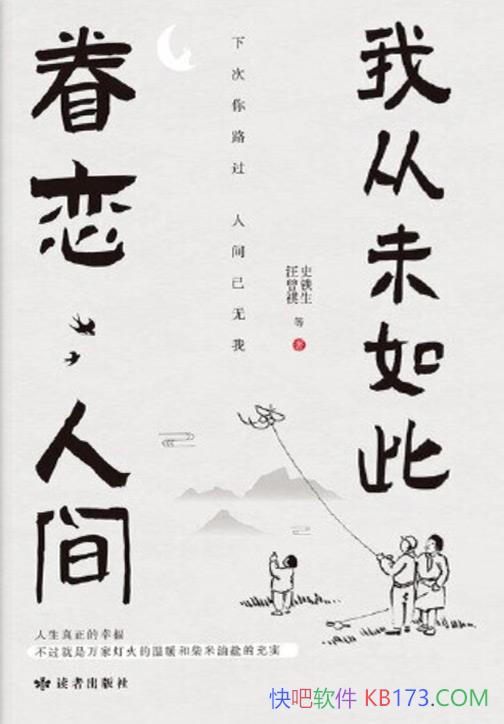 我从未如此
眷恋人间
下次你路过 人间已无我
史铁生
汪曾祺
等
著
人生真正的幸福
不过就是万家灯火的温暖和柴米油盐的充实
读者出版社
快吧软件 KB173.COM